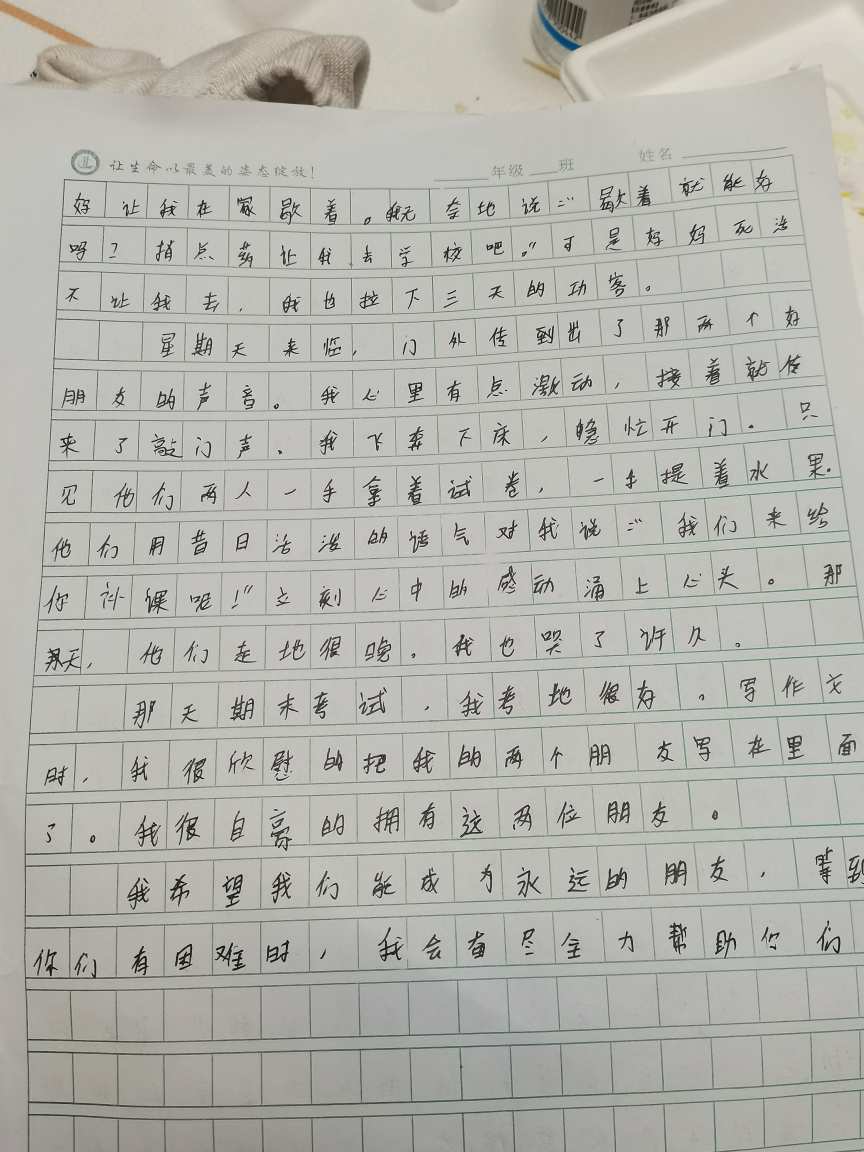 让生命以最美的姿态绽放！ 年级 班 姓名
好让我在家歇着。我无奈地说:“歇着就能好
吗？捎点药让我去学校吧。”可是妈妈死活
不让我去，我也拉下三天的功客。
星期天来临，门外传到出了那两个好
朋友的声音。我心里有点激动，接着就传
来了敲门声。我飞奔下床，急忙开门。只
见他们两人一手拿着试卷，一手提着水果.
他们用昔日活泼的语气对我说:“我们来给
你补课呢!”立刻心中的感动涌上心头。那
天，他们走地很晚。我也哭了许久。
那天期末考试，我考地很好。写作文
时，我很欣慰的把我的两个朋友写在里面
了。我很自豪的拥有这两位朋友。
我希望我们能成为永远的朋友，等到
你们有困难时，我会奋尽全力帮助你们